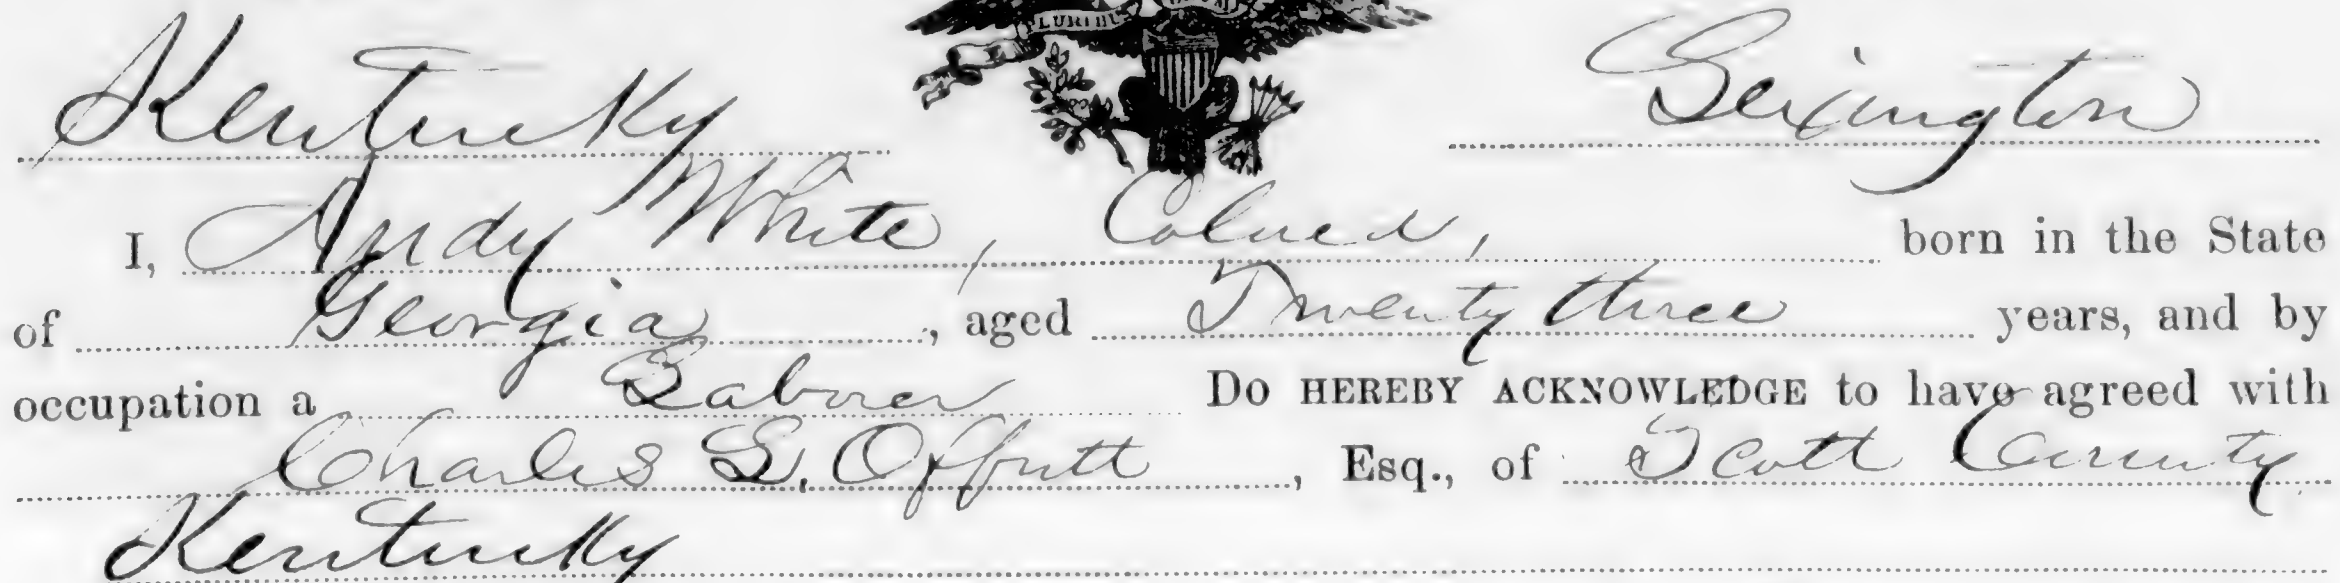 PLURIBUS
Kentucky Lexington
I, Andy White, Colored, born in the State
of Georgia, aged Twenty three years, and by
occupation a Laborer Do HEREBY ACKNOWLEDGE to have agreed with
Charles L. Offutt, Esq., of Scott County
Kentucky